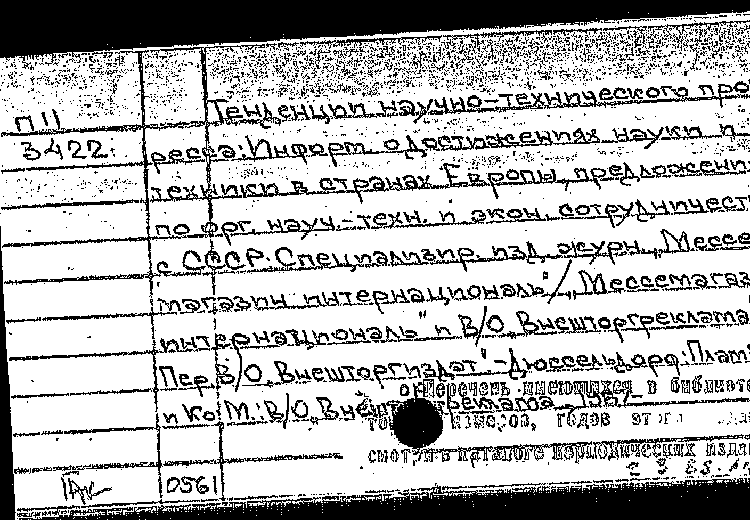 П II Тенденции научно-технического про
3422. гресса: Информ. о достижениях науки и
техники в странах Европы, предложени
по орг. науч.-техн. и экон. сотрудничест
с СССР. Специализир. изд. журн. „Мессе
магазин интернациональ"/„Мессемагаз
интернациональ" и В/О „Внешторгреклама
Пер. В/О „Внешторгиздат". - Дюссельдорф: Плат
и Ко; М.: В/О „Внешторгреклама", 19
Перечень имеющихся в библиоте
номеров, годов этого
смотри в каталоге периодических издан
0561